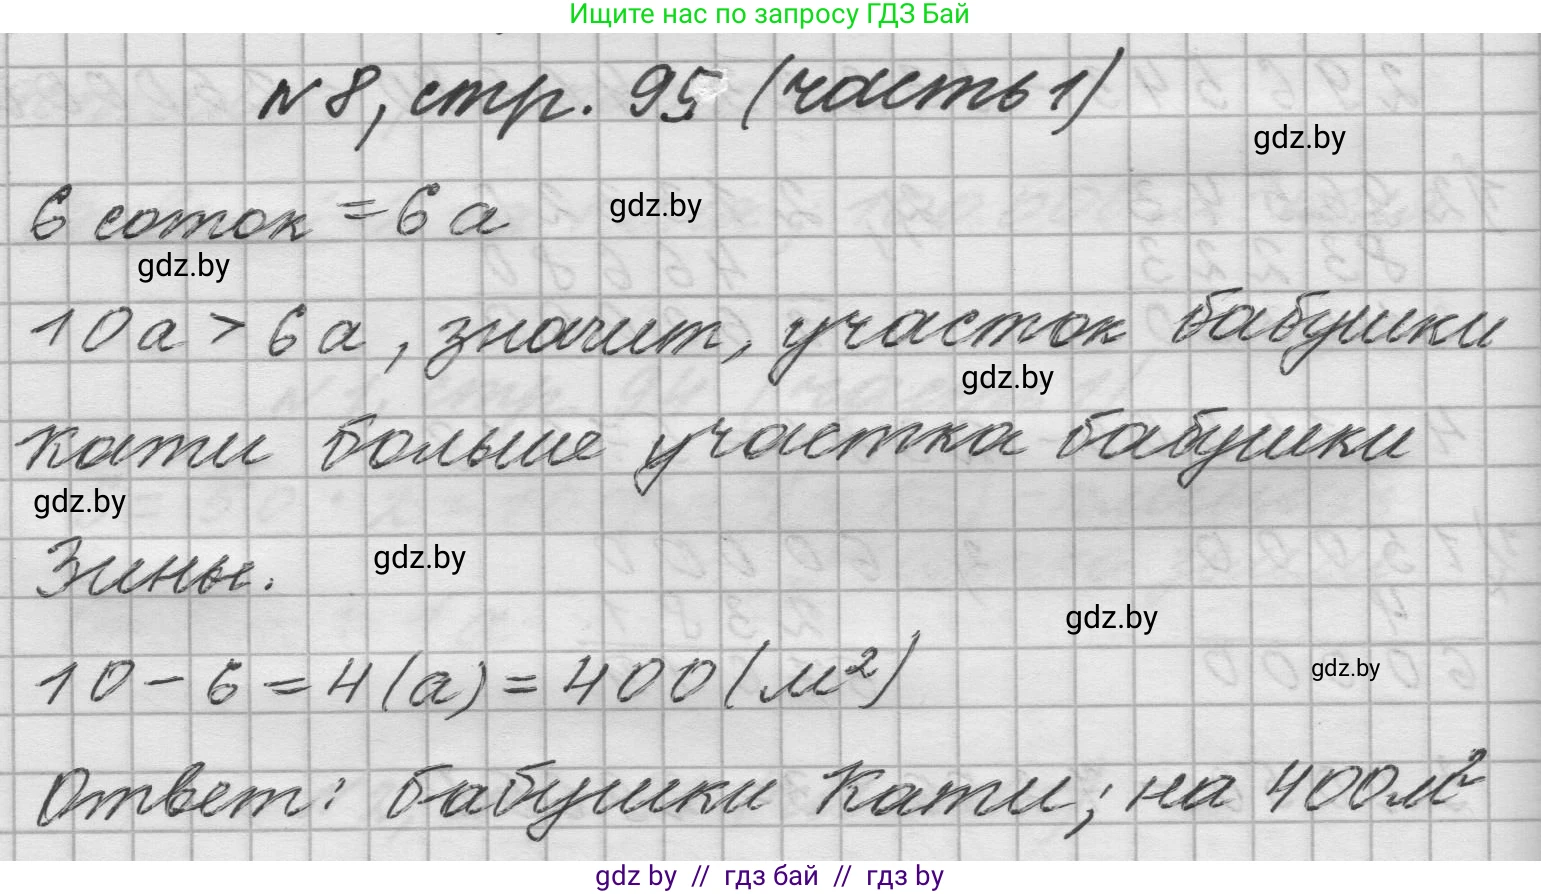 Ищите нас по запросу ГДЗ Бай
№8, стр. 95 (часть 1)
gdz.by
6 соток = 6 а
gdz.by
gdz.by
10 а > 6 а, значит, участок бабушки
gdz.by
Кати больше участка бабушки
gdz.by
Зины.
gdz.by
gdz.by
10 - 6 = 4 (а) = 400 (м²)
gdz.by
Ответ: бабушки Кати; на 400 м²
gdz by // гдз бай // гдз by